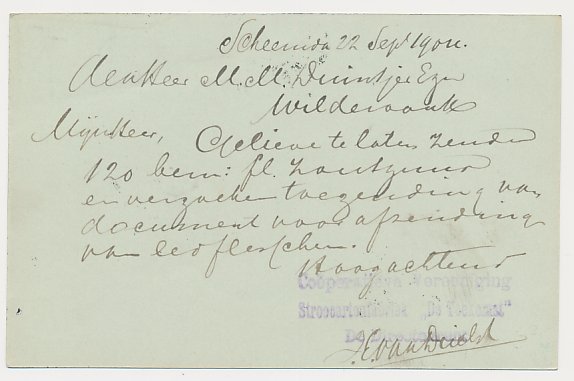 Scheemda 22 Sept 1904.
Den Heer M.M. Duintjer Ezn
Wildervank
Mijnheer, Gelieve te laten zenden
120 bem: fl. Zoutzuur
en verzoeke toezending van
document voor afzending
van ledflesschen.
Hoogachtend
Coöperatieve Vereeniging
Stroocartonfabriek „De Toekomst"
De Directeur